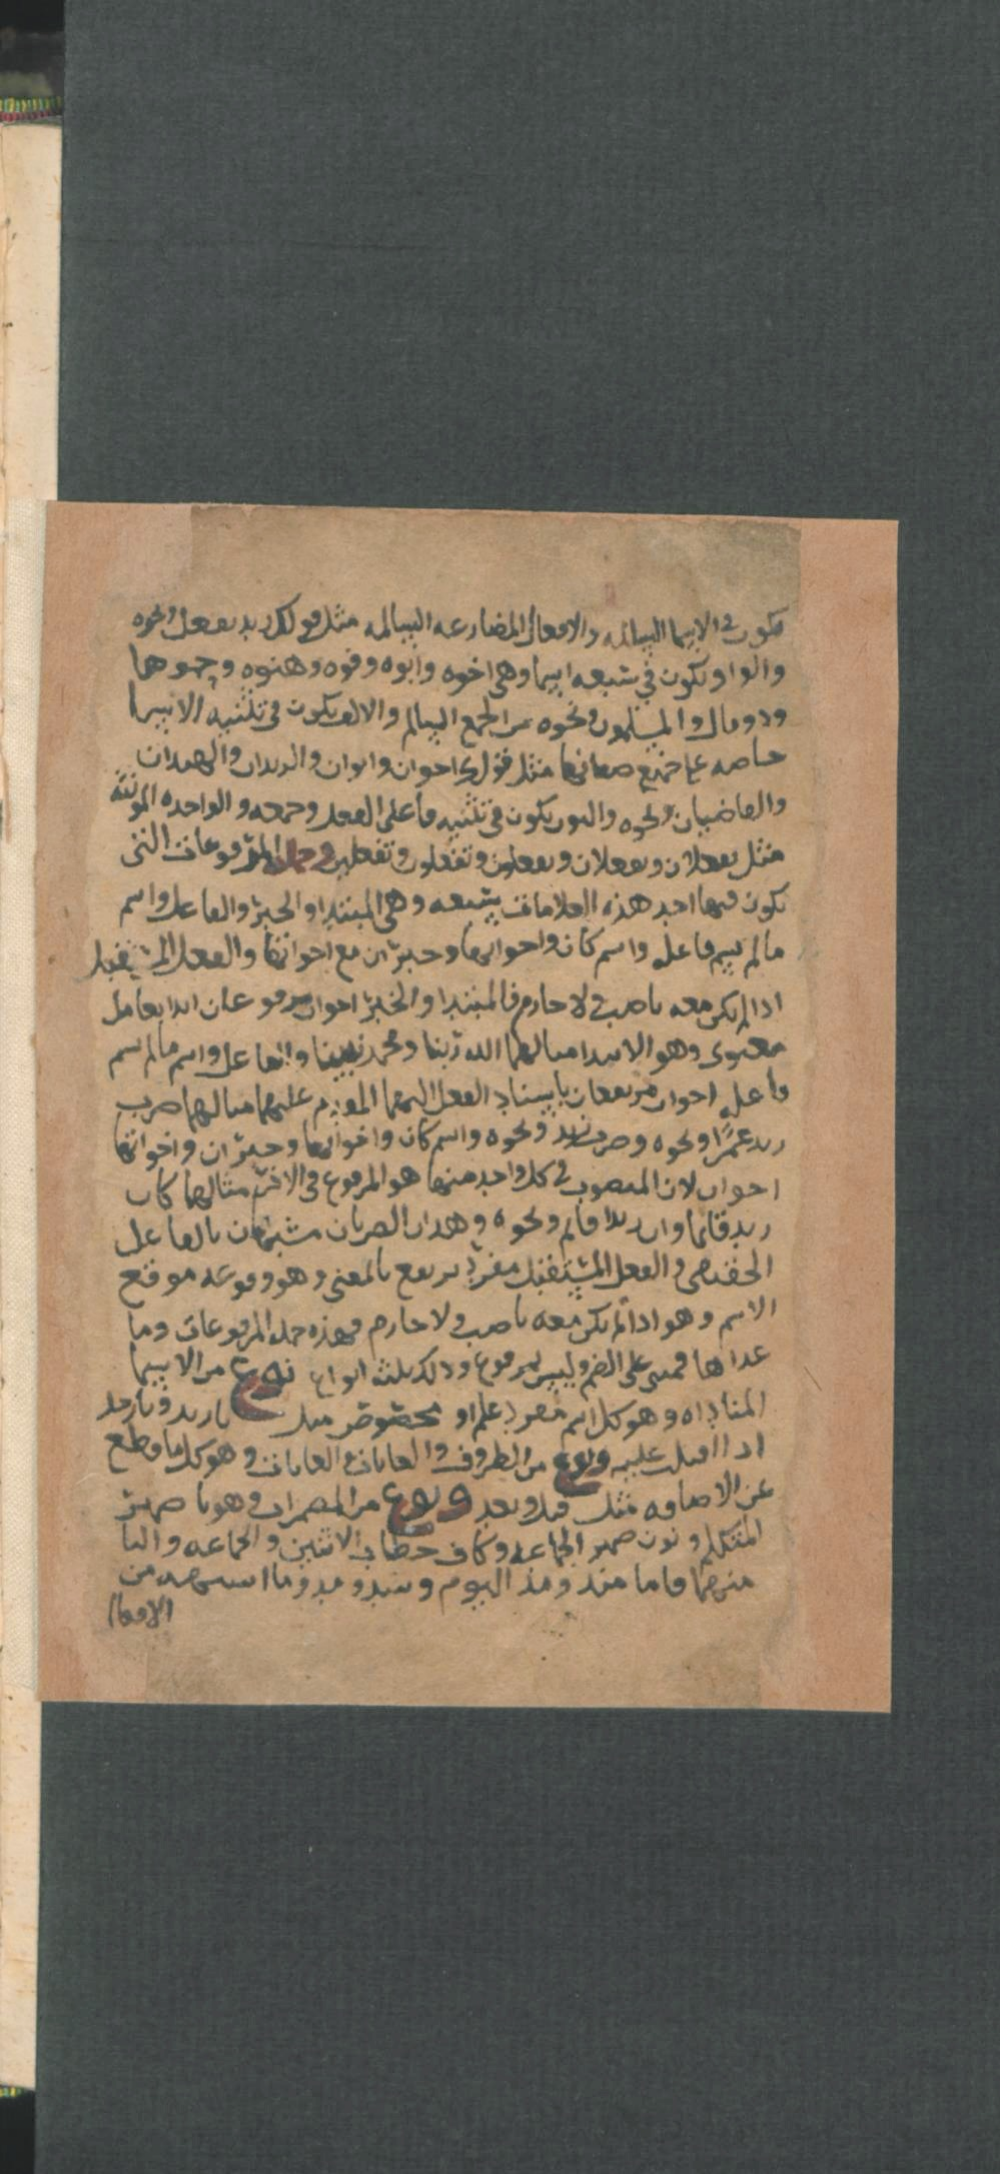 فتكون في الاسما السالمه والافعال المضارعه السالمه مثل قولك زيد يفعل ونحوه
والواو تكون في سبعه اسما وهي اخوه وابوه وفوه وهنوه وحموها
وذو مال والمسلمون ونحوه من الجمع السالم والالف يكون في تثنيه الاسما
خاصه على جميع معانيها مثل قولك اخوان وابوان والزيدان والهندان
والقاضيان ونحوه والنون يكون في تثنيه فاعلي الفعل وجمعه والواحده المونثه
مثل يفعلان وتفعلان ويفعلون وتفعلون وتفعلين وجمله المرفوعات التي
تكون فيها احد هذه العلامات سبعه وهي المبتدا والخبر والفاعل واسم
ما لم يسم فاعله واسم كان واخواتها وخبر ان مع اخواتها والفعل المستقبل
اذا لم يكن معه ناصب ولا جازم فالمبتدا والخبر اخوان مرفوعان ابدا بعامل
معنوي وهو الابتدا مثالهما الله ربنا ومحمد نبينا والفاعل واسم ما لم يسم
فاعله اخوان مرتفعان باسناد الفعل اليهما المقدم عليهما مثالهما ضرب
زيد عمرًا ونحوه وضرب زيد ونحوه واسم كان واخواتها وخبر ان واخواتها
اخوان لان المنصوب في كل واحد منهما هو المرفوع في الاخر مثالهما كان
زيد قائما وان زيدا قائم ونحوه وهذان الضربان مشبهان بالفاعل
الحقيقي والفعل المستقبل مفرد يرتفع بالمعنى وهو وقوعه موقع
الاسم وهو اذا لم يكن معه ناصب ولا جازم فهذه جمله المرفوعات وما
عداها فمبني على الضم وليس بمرفوع وذلك ثلثه انواع نوع من الاسما
المناداه وهو كل اسم مفرد علم او مخصوص مثل يا زيد ويا رجل
اذا اقبلت عليه ونوع من الظروف والغايات وهو كل ما قطع
عن الاضافه مثل قبل وبعد ونوع من المضمرات وهو تا ضمير
المتكلم ونون ضمير الجماعه وكاف خطاب الاثنين والجماعه والتا
منهما فاما منذ ومذ اليوم وما اشبهه من
الافعال